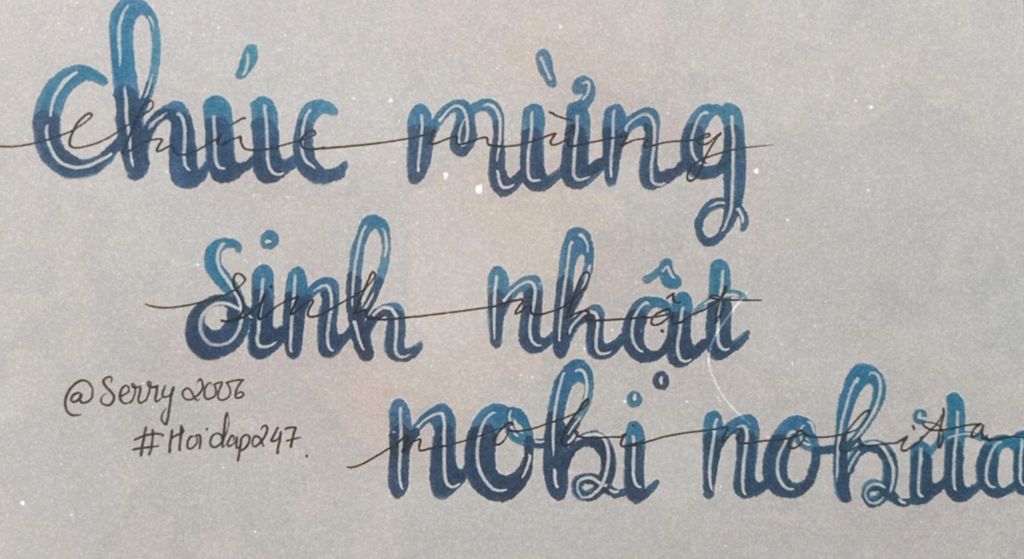 chúc mừng
sinh nhật
@Serry2006
#Hoidap247.
nobi nobita